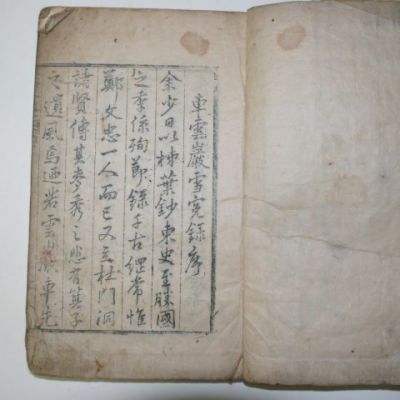 車雲巖雪冤錄序
余少日以柿葉鈔東史至勝國
之季係殉節錄千古綱常惟
鄭文忠一人而已又立杜門洞
諸賢傳其麥秀之悲有箕子
之遺風焉迺若雲巖車先